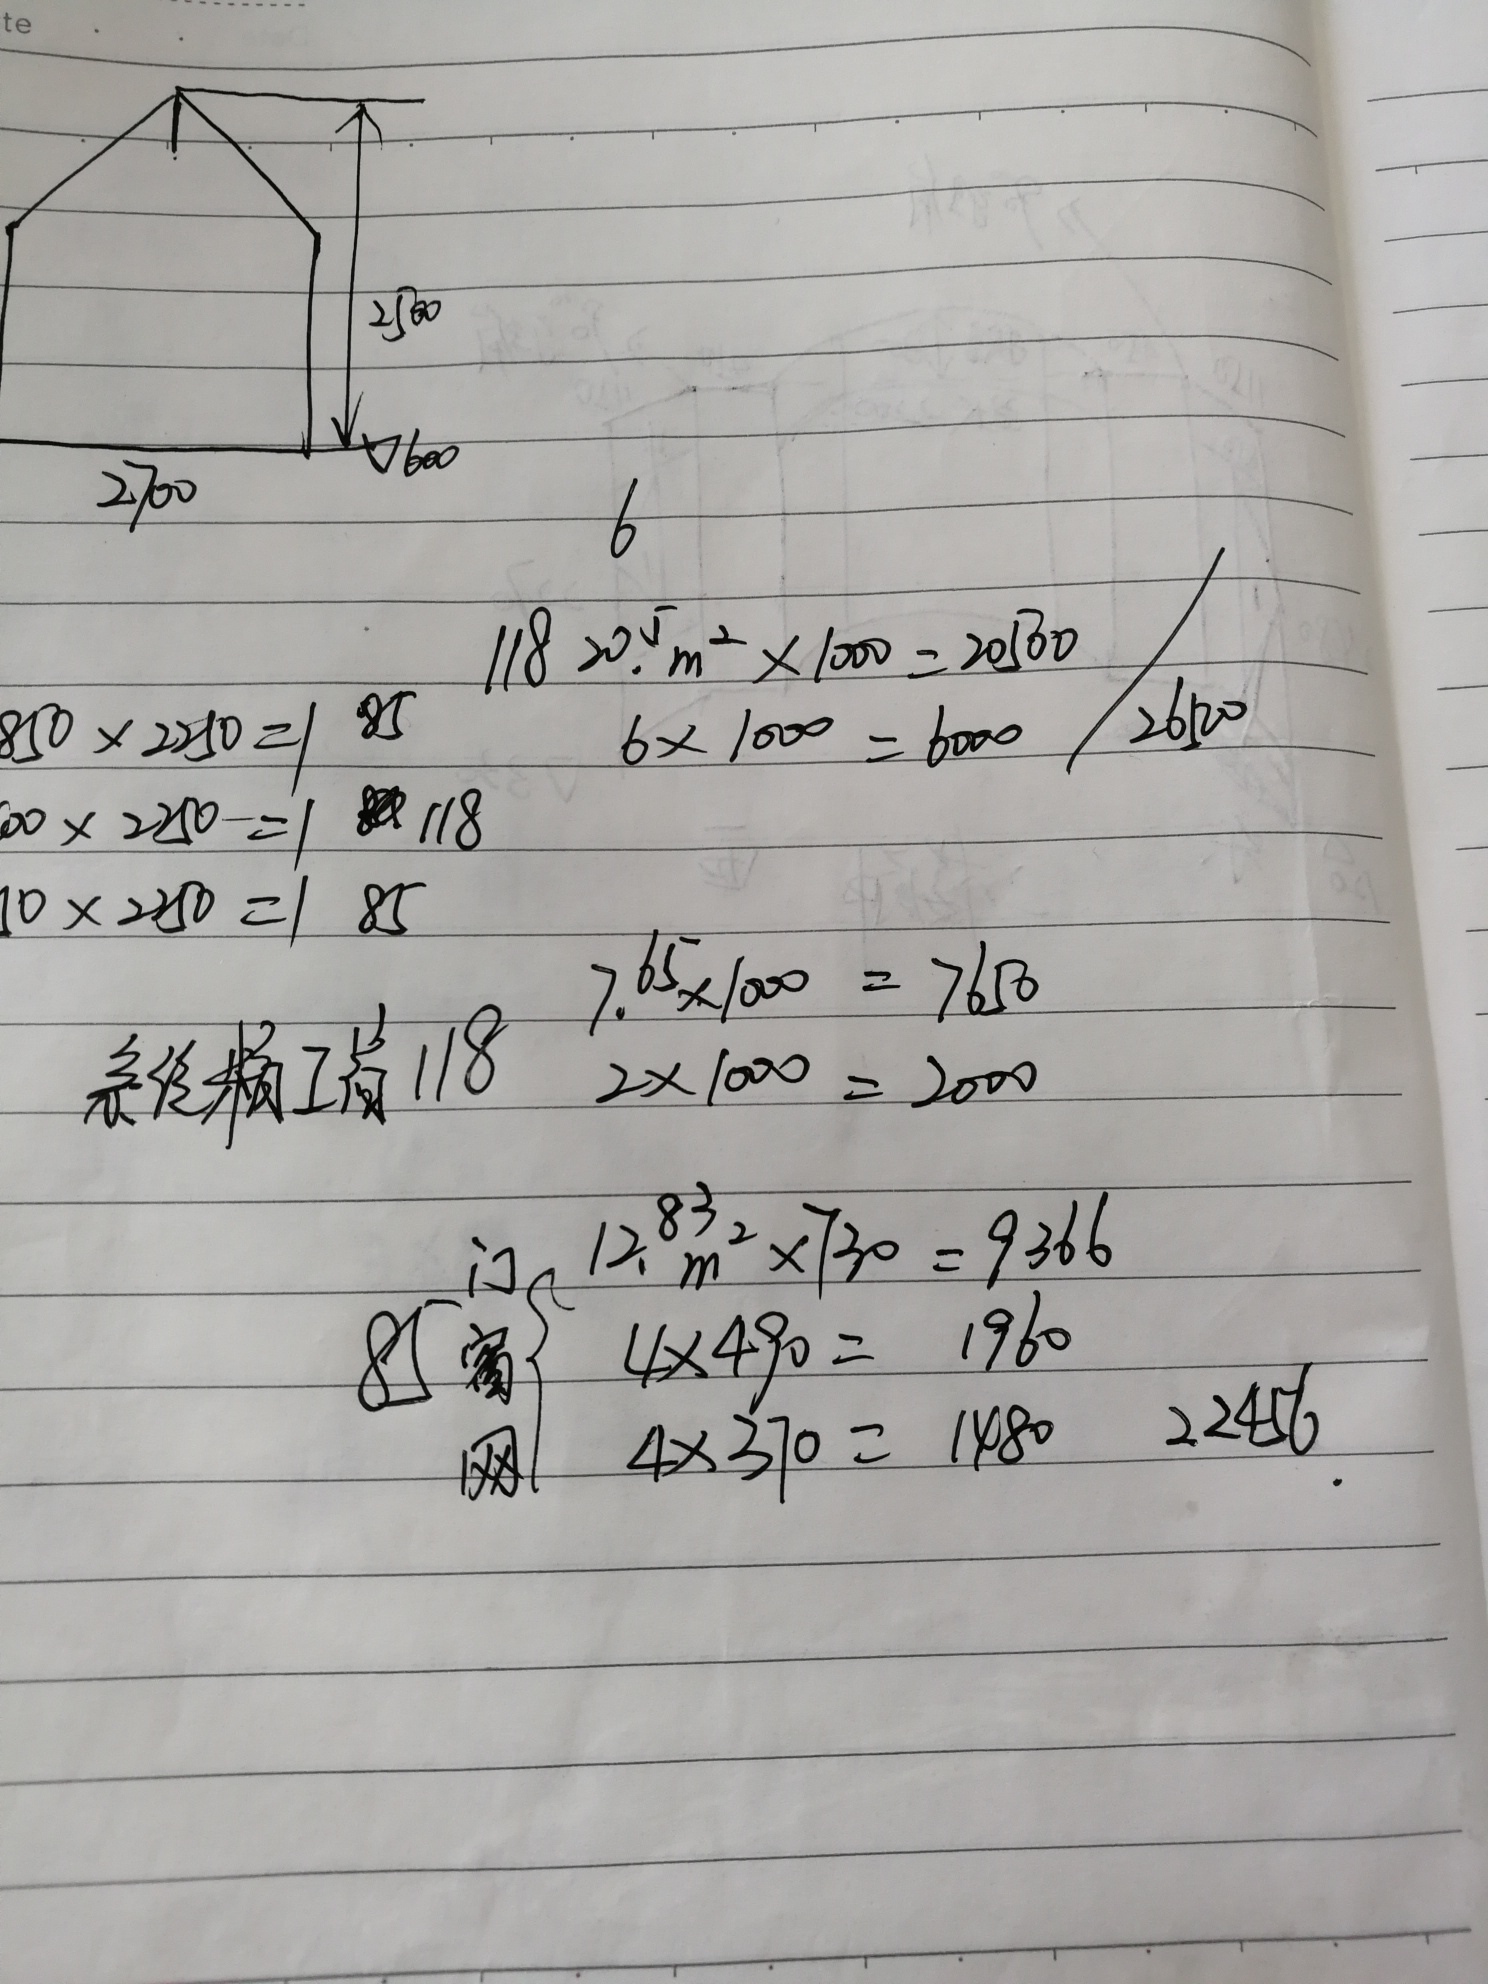 te
2500
▽600
2700
6
118 20.5m² × 1000 = 20500
850 × 2250 = 1 85
6 × 1000 = 6000 / 26500
00 × 2250 = 1 118
10 × 2250 = 1 85
7.65 × 1000 = 7650
118 2 × 1000 = 2000
门 12.83m² × 730 = 9366
85 窗 4 × 490 = 1960
网 4 × 370 = 1480 22456